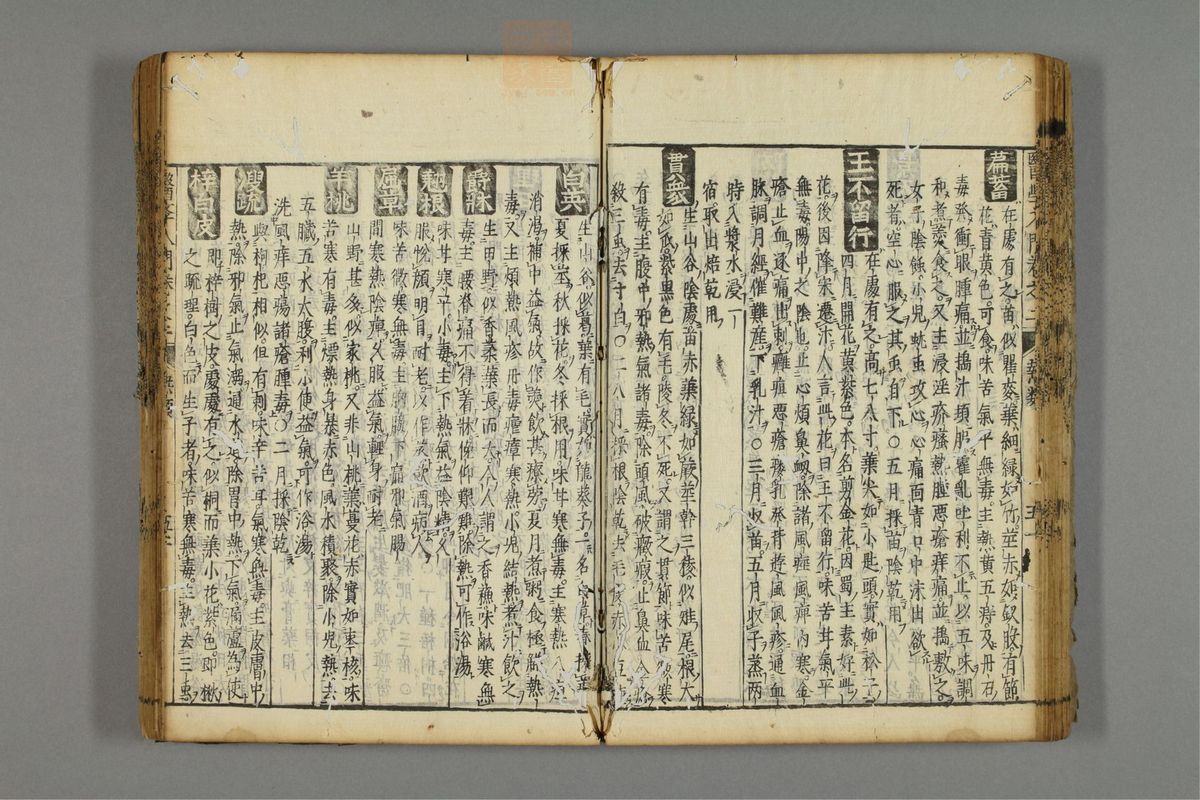 萹蓄
在處有之苗似瞿麥葉細綠如竹莖赤如釵股有節
花青黃色可食味苦氣平無毒主熱黃五疳及丹石
毒發衝眼腫痛並搗汁頓服霍亂吐利不止以五味調
和煮羹食之又主浸淫疥瘙熱腫惡瘡痒痛並搗敷之
女子陰蝕小兒蚘虫攻心心痛面青口中沫出欲
死煮空心服之其虫自下○五月採苗陰乾用
王不留行
在處有之高七八寸葉尖如小匙頭實如松子
四月開花黃紫色本名剪金花因蜀主素好此
花後因降宋遷汴人言此花曰王不留行味苦甘氣平
無毒陽中之陰也止心煩鼻衂除諸風痙風痺內寒金
瘡止血逐痛出刺癰疽惡瘡瘻乳發背遊風風疹通血
脉調月經催難產下乳汁○三月收苗五月收子蒸兩
時入漿水浸一
宿取出焙乾用
貫衆
生山谷陰處苗赤葉綠如蕨莖幹三稜似雉尾根大
如瓜紫黑色有毛陵冬不死又謂之貫節味苦微寒
有毒主腹中邪熱氣諸毒除頭風破癥瘕止鼻血金瘡
殺三虫去寸白○二八月採根陰乾去毛
白英
生山谷似
夏採莖秋採花冬採根用味甘寒無毒主寒熱八疸
消渴補中益氣故作羹飲甚療勞夏月煮粥食極解熱
毒又主煩熱風疹丹毒癉瘧寒熱小兒結熱煮汁飲之
爵牀
生田野似香葇葉長而大人謂之香蘇味鹹寒無
毒主腰脊痛不得着牀俛仰艱難除熱可作浴湯
味甘寒平小毒主下熱氣益陰精久
服悅顏明目耐老以作蒸飲酒病人
味苦微寒無毒主膀胱下痛邪氣腸
間寒熱陰痺久服益氣輕身耐老
羊桃
山野甚多似家桃又非山桃葉蔓花赤實如棗核味
苦寒有毒主熛熱身暴赤色風水積聚除小兒熱去
五臟五水大腹利小便益氣可作浴湯
洗風痒惡瘍諸瘡腫毒○二月採陰乾
溲疏
與枸杞相似但有刺味辛苦氣寒無毒主皮膚中
熱除邪氣止氣溺通水道除胃中熱下氣
梓白皮
即梓樹之皮處處有之似桐而葉小花紫色即楸
之疏理白色而生子者味苦寒無毒主熱去三虫